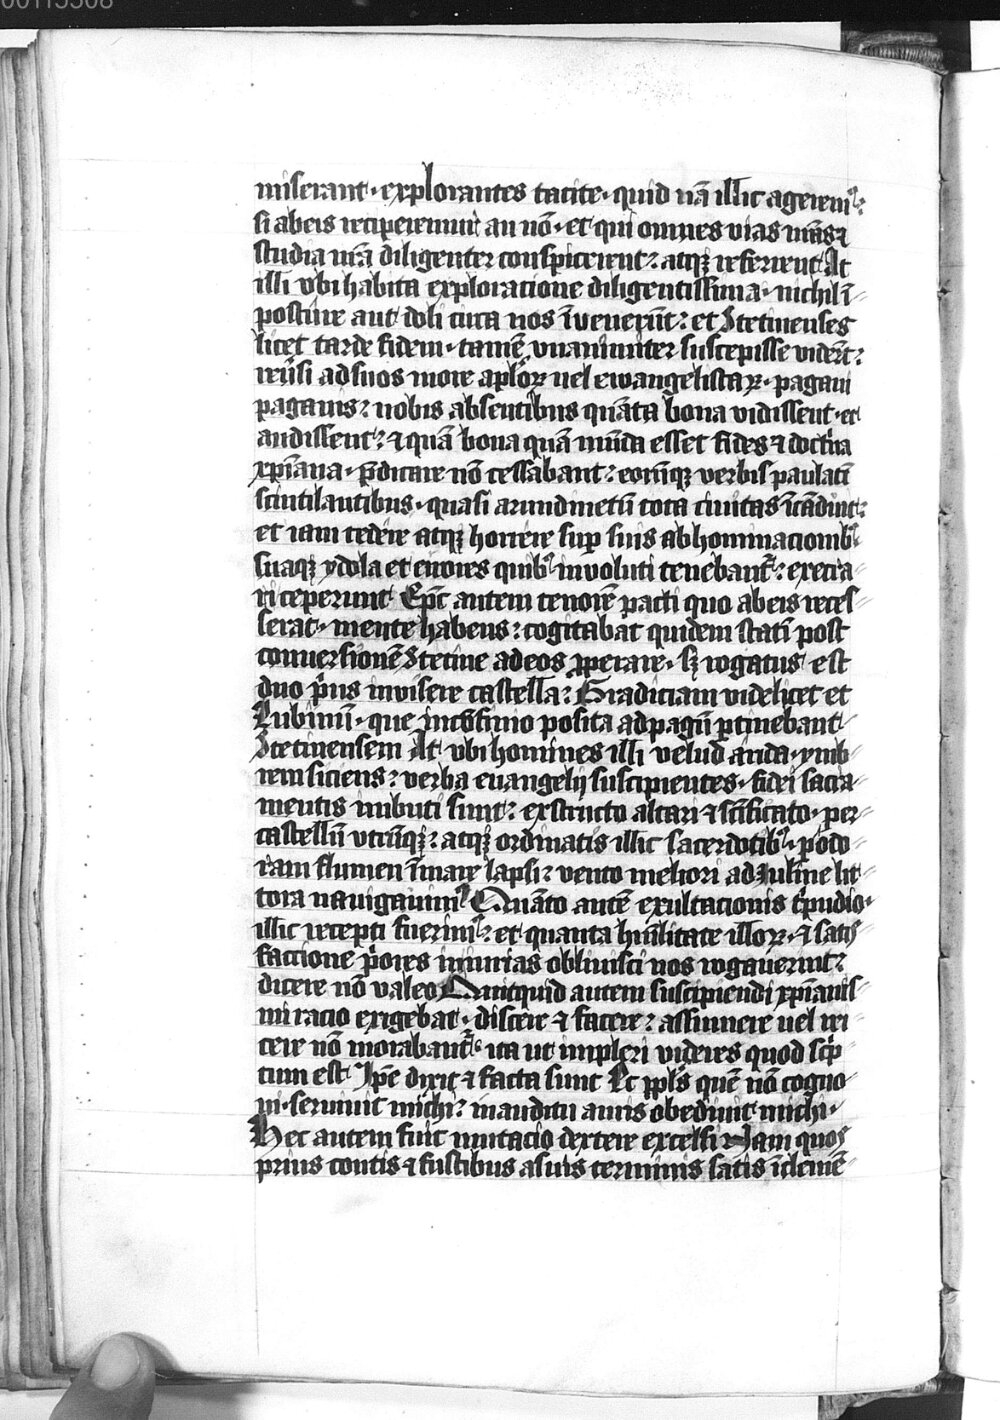 00115508
miserant · explorantes tacite · quid nā illic ageremꝰ :
si abeis reciperemur an nō · et qui omnes vias nr̄as ⁊
studia nr̄a diligenter conspicerent : atqꝫ referrent At
illi vbi habita exploracione diligentissima · nichil ī
posture aut doli circa nos īvenerūt : et Stetinenses
licet tarde fidem · tamē vnanimiter suscepisse viderēt :
reūsi ad suos more aplōꝝ uel ewangelistaꝝ · pagani
paganis : nobis absentibus quāta bona vidissent · et
audissent : ⁊ quā bona quā mūda esset fides ⁊ doctͥna
xp̄iana · p̄dicare nō cessabant : eorūqꝫ verbis paulatī
scintilantibus · quasi arundinetū tota ciuitas īcādūit :
et iam tedere atqꝫ horrere suꝑ suis abhominacionibꝰ
suaqꝫ ydola et errores quibꝰ involuti tenebantᷣ : execra
ri ceperunt Ep̄c autem tenorē pacti quo abeis reces
serat · mente habens : cogitabat quidem statī post
conuersionē Stetine ad eos ꝓperare · sꝫ rogatus est
duo pͥus invisere castella : Gradiciam videlicet et
Lubinū · que in cōfinio posita ad pagū ꝑtinebant
Stetinensem At vbi homines illi velud arida · ymb
rem siciens : verba euangelij suscipientes · fidei sacra
mentis imbuti sunt : exstructo altari ⁊ sc̄ificato · per
castellū vtrūqꝫ : atqꝫ ordinatis illic sacerdotibꝰ · ꝑ odo
ram flumen ī mare lapsi : vento meliori ad Juline lit
tora nauigauimꝰ Quāto autē exultacionis tͥpudio
illic recepti fuerimꝰ : et quanta hūilitate illoꝝ · ⁊ satis
faccione pͥores iniurias obliuisci nos rogauerint :
dicere nō valeo Quitquid autem suscipiendi xp̄ianis
mi racio exigebat · discere ⁊ facere : assumere uel rei
cere nō morabantᷣ · ita ut impleri videres quod scͥp
tum est Ip̄e dixit ⁊ facta sunt Et ppl̄s quē nō cogno
ui · seruiuit michi : in auditu auris obediuit michi ·
Hec autem fuit mutacio dextere excelsi Nam quos
prius contis ⁊ fustibus a suis terminis satis īclemē